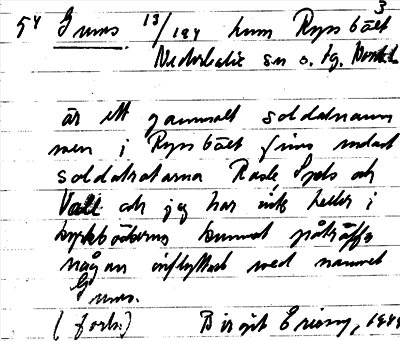 54 Grums 13/184 hem Ryssbält 3
Nederkalix sn o. tg.
är ett gammalt soldatnamn
men i Ryssbält finns endast
soldaterna Rask och
Vall och jag har inte heller i
kyrkböckerna kunnat påträffa
någon inflyttad med namnet
Grums.
(forts.) Birgit